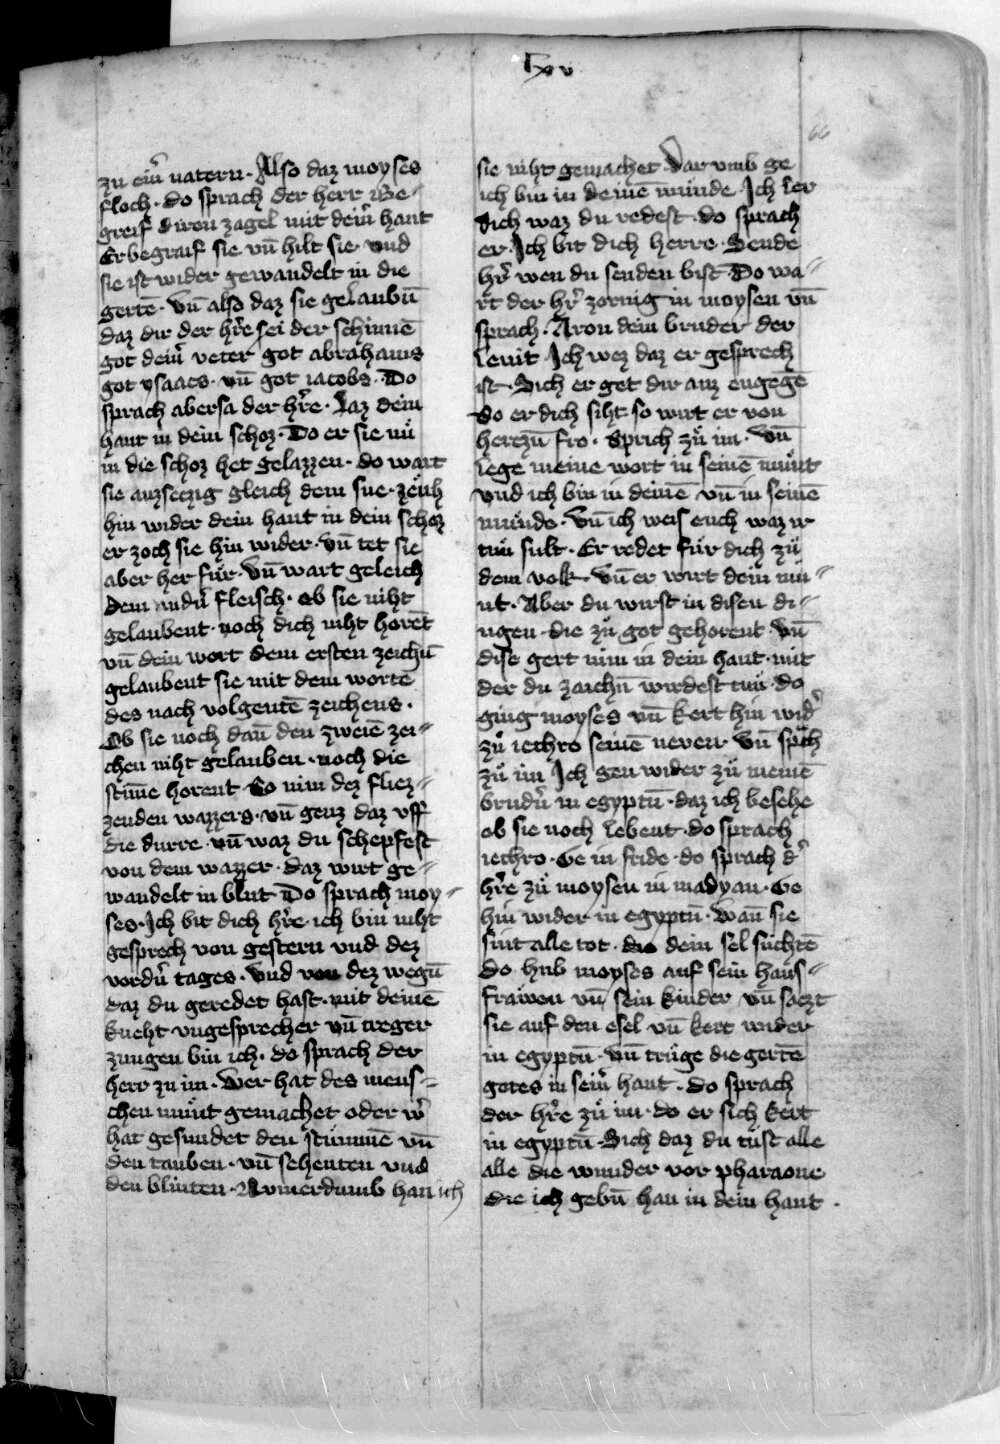 lxv
66
zu eīn̄ natern · Also daz moyses
floch · do sprach der herr Be⸗
greif diron zagel mit dein̄ hant
Er begraif sie vn̄ hilt sie · vnd
sie ist wider gewandelt in die
gertē · Vn̄ also daz sie gelaubn̄
daz dir der hr̄e sei der schinnē
got dein̄ veter got abrahams
got ysaacs · vn̄ got iacobs · Do
sprach abersa der hr̄e · Laz dein
hant in dein schoz · Do er sie nu̍
in die schoz het gelazzen · do wart
sie auzseczig gleich dem sne · zeuh
hin wider dein hant in dein schoz
er zoch sie hin wider · vn̄ tet sie
aber her für · Vn̄ wart geleich
dem andn̄ fleisch · ob sie niht
gelaubent · noch dich niht horēt
vn̄ dein wort dem ersten zeichn̄
gelaubent sie mit dem wortē
des nach volgentē zeichens ·
Ob sie noch dan̄ den zweiē zei⸗
chen niht gelauben · noch die
stim̄e horent · So nim dez fliez⸗
zenden wazzers · vn̄ geuz daz vff
die durre · vn̄ waz du schepfest
von dem wazzer · daz wirt ge⸗
wandelt in blut · Do sprach moy⸗
ses · Ich bit dich hr̄e · ich bin niht
gesprech von gestern vnd dez
vordn̄ tages · Vnd von dez wegn̄
daz du geredet hast · mit deinē
kneht · vngesprecher vn̄ treger
zungen bin ich · do sprach der
herr zu im · Wer hat des mens⸗
chen mu̍nt gemachet oder w̄
hat gesundet den stummē vn̄
den tauben · vn̄ sehenten vnd
den blinten · Numerdumb han ich
sie niht gemachet · Dar vmb ge
ich bin in deinē munde Ich ler
dich waz du redest · do sprach
er · Ich bit dich herre · Sende
hr̄ wen du senden bist · Do wa⸗
rt der hr̄ zornig in moysen vn̄
sprach · Aron dein bruder der
Leuit Ich wez daz er gesprech
ist · Sich er get dir auz engegē
So er dich siht · so wirt er von
herczn̄ fro · Sprich zu̍ im · Vn̄
lege meine wort in seinē mu̍nt
vnd ich bin in deinē vn̄ in seinē
mu̍nde · Vn̄ ich weis euch waz ir
tun̍ sult · Er redet für dich zu̍
dem volk · Vn̄ er wirt dein mu⸗
nt · Aber du wirst in disen di⸗
ngen · die zu̍ got gehorent · Vn̄
dise gert nim in dein hant · mit
der du zaichn̄ wirdest tun̍ · do
ging moyses vn̄ kert hin wid̾
zu̍ iethro seinē neven · Vn̄ sp̾ch
zu̍ im Ich gen wider zu̍ meinē
brudn̄ in egyptn̄ · daz ich besehe
ob sie noch lebent · do sprach
iethro · Ge in fride · do sprach d̾
hr̄e zu̍ moysen in madyan · Ge
hin wider in egyptn̄ · Wan̄ sie
sint alle tot · die dein sel suchtē
do hub moyses auf sein haus⸗
frawen vn̄ sein kinder vn̄ saczt
sie auf den esel vn̄ kert wider
in egyptn̄ · Vn̄ truge die gertē
gotes in sein̄ hant · do sprach
der hr̄e zu̍ im · do er sich kert
in egyptn̄ · Sich daz du tust alle
alle die wunder vor pharaone
die ich gebn̄ han in dein hant ·